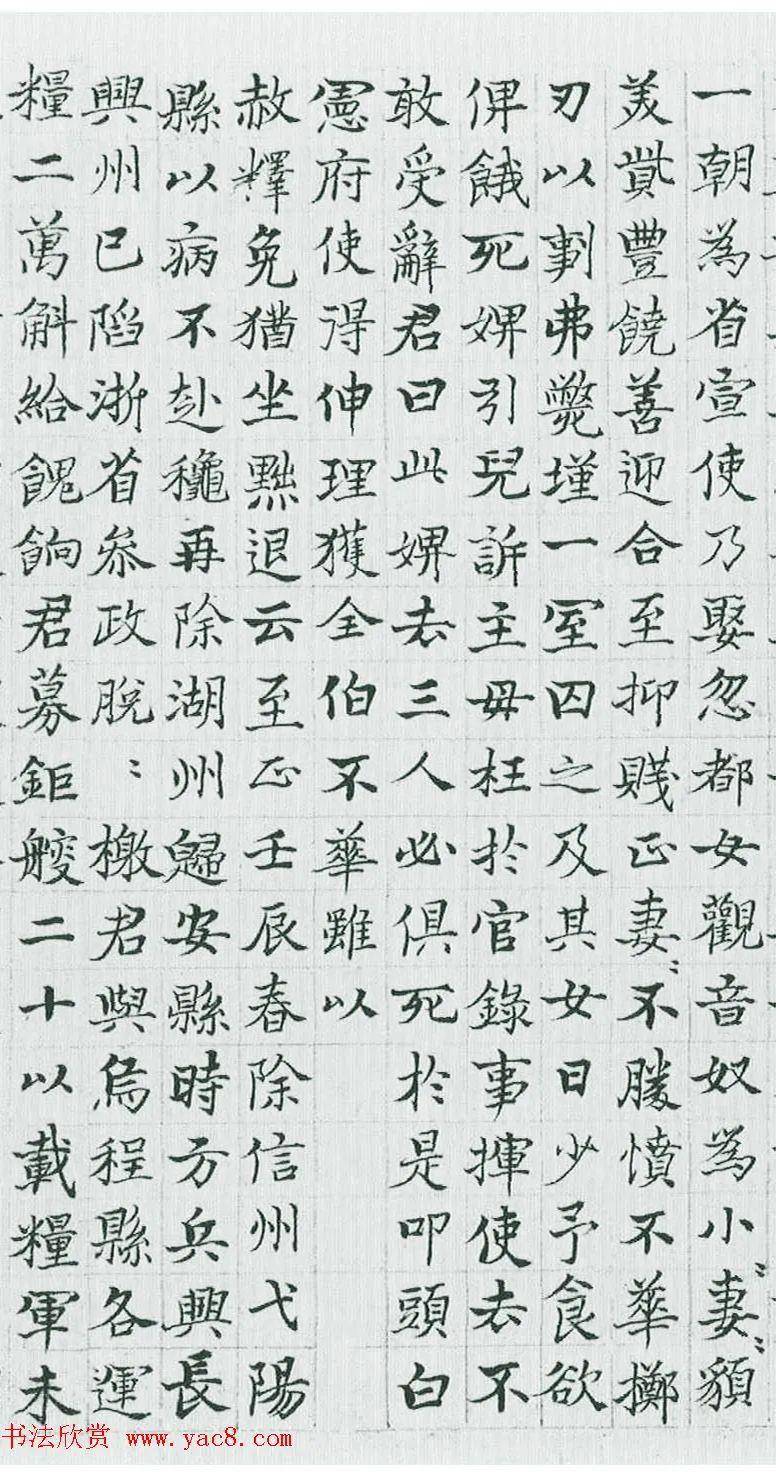 一朝為省宣使乃娶忽都女觀音奴為小〻妻〻貌
美貲豐饒善迎合至抑賤正妻〻不勝憤不華擲
刃以剚弗斃墐一室囚之及其女日少予食欲
俾餓死婢引兒訴主母枉於官錄事揮使去不
敢受辭君曰此婢去三人必俱死於是叩頭白
憲府使得伸理獲全伯不華雖以
赦釋免猶坐黜退云至正壬辰春除信州弋陽
縣以病不赴穐再除湖州歸安縣時方兵興長
興州已陷浙省叅政脫〻檄君與烏程縣各運
糧二萬斛給餽餉君募鉅艘二十以載糧軍未
书法欣赏 www.yac8.com